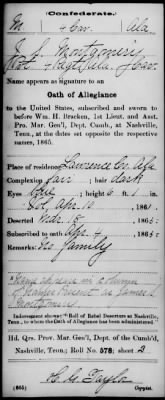 Confederate.
M. 4 Cav. Ala
J. S. Montgomery
Cav.
Name appears as signature to an
Oath of Allegiance
to the United States, subscribed and sworn to
before Wm. H. Bracken, 1st Lieut. and Asst.
Pro. Mar. Gen'l, Dept. Cumb., at Nashville,
Tenn., at the dates set opposite the respective
names, 1865.
Place of residence Lawrence Co. Ala
Complexion fair; hair dark
Eyes; height 6 ft. 1 in.
Apr. 10, 186
Deserted Mar. 18, 1865.
Subscribed to oath Apr. 4, 1865.
Remarks: Has family
in a column
as James S.
Montgomery
Indorsement shows: "Roll of Rebel Deserters at Nashville,
Tenn., to whom the Oath of Allegiance has been administered."
Hd. Qrs. Pro. Mar. Gen'l, Dept. of the Cumb'd,
Nashville, Tenn.; Roll No. 578; sheet 2
Taylor
(865) Copyist.